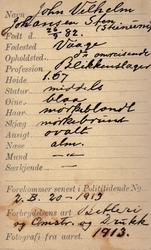 Navn John Vilhelm
Johansen Sten (Steinsen)
Født 26/9 82.
Fødested Vaage
Opholdsted Paa omreisende
Profession Blikkenslager
Høide 1.67
Statur middels
Øine blaa
Haar mørkblondt
Skjæg mørkebrunt
Ansigt ovalt
Næse alm.
Mund — „ —
Særkjende — „ —
Forekommer senest i Polititidende No.
2. B. 20 - 1913
Forbrydelsens art Betleri
og Omstr. og Drikk
Fotografi fra aaret 1913.